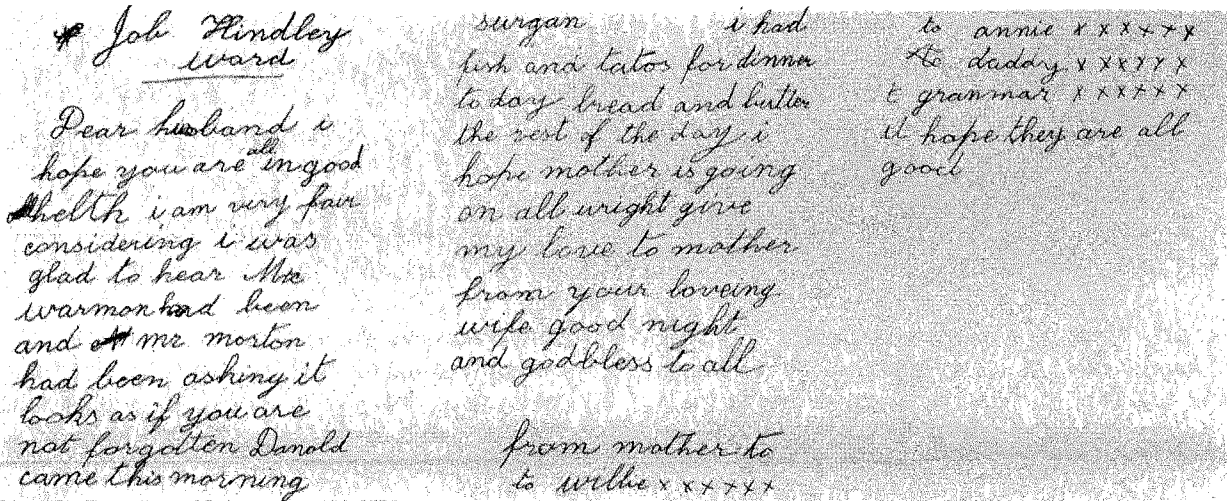 Job Hindley
ward
Dear husband i
hope you are all in good
helth i am very fair
considering i was
glad to hear Mr
warmon had been
and mr morton
had been asking it
looks as if you are
not forgotten Danold
came this morning
surgan i had
fish and tatos for dinner
today bread and butter
the rest of the day i
hope mother is going
on all wright give
my love to mother
from your loveing
wife good night
and godbless to all
from mother to
to willie x x x x x x
to annie x x x x x x
to daddy x x x x x x
t granmar x x x x x x
it hope they are all
good